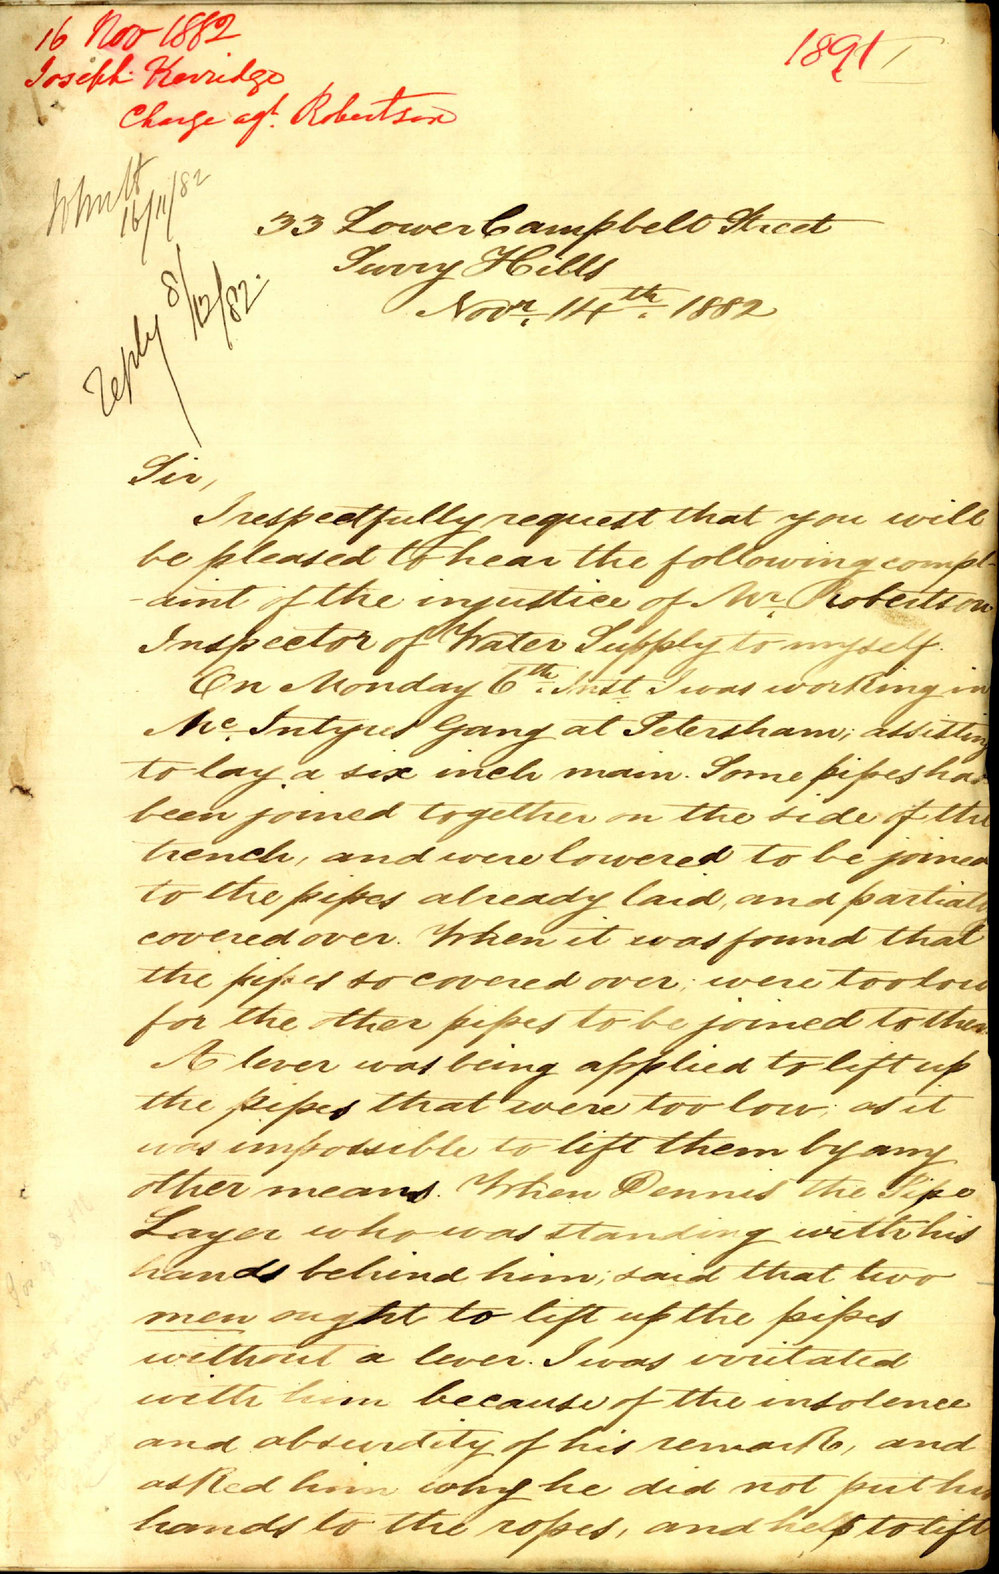 16 Nov 1882
Joseph Kerridge
Charge agt. Robertson
1891
16/11/82
reply 8/12/82.
33 Lower Campbell Street
Surry Hills
Novr. 14th. 1882
Sir,
I respectfully request that you will
be pleased to hear the following compl-
-aint of the injustice of Mr. Robertson
Inspector of Water Supply to myself.
On Monday 6th. Inst I was working in
Mc. Intyres Gang at Petersham; assisting
to lay a six inch main. Some pipes had
been joined together on the side of the
trench, and were lowered to be joined
to the pipes already laid, and partially
covered over. When it was found that
the pipes so covered over, were too low
for the other pipes to be joined to them.
A lever was being applied to lift up
the pipes that were too low; as it
was impossible to lift them by any
other means. When Dennis the Pipe
Layer who was standing with his
hands behind him; said that two
men ought to lift up the pipes
without a lever. I was irritated
with him because of the insolence
and absurdity of his remark, and
asked him why he did not put his
hands to the ropes, and help to lift